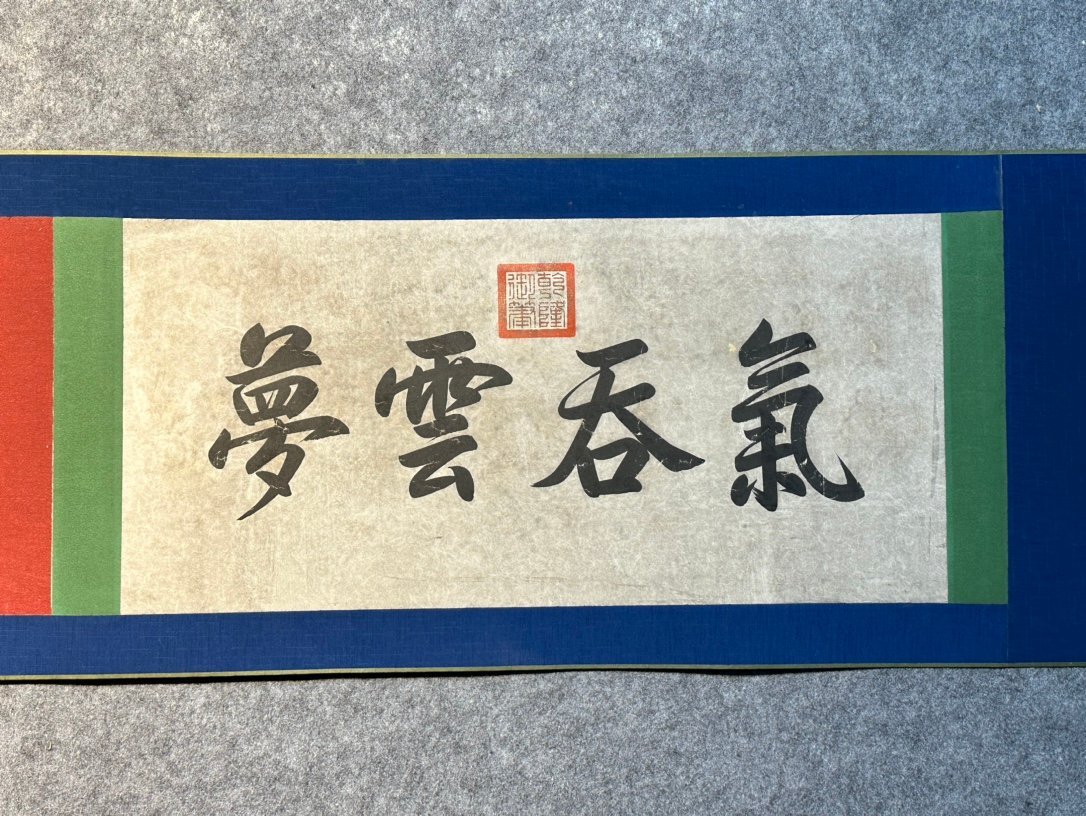 氣吞雲夢
乾隆御筆